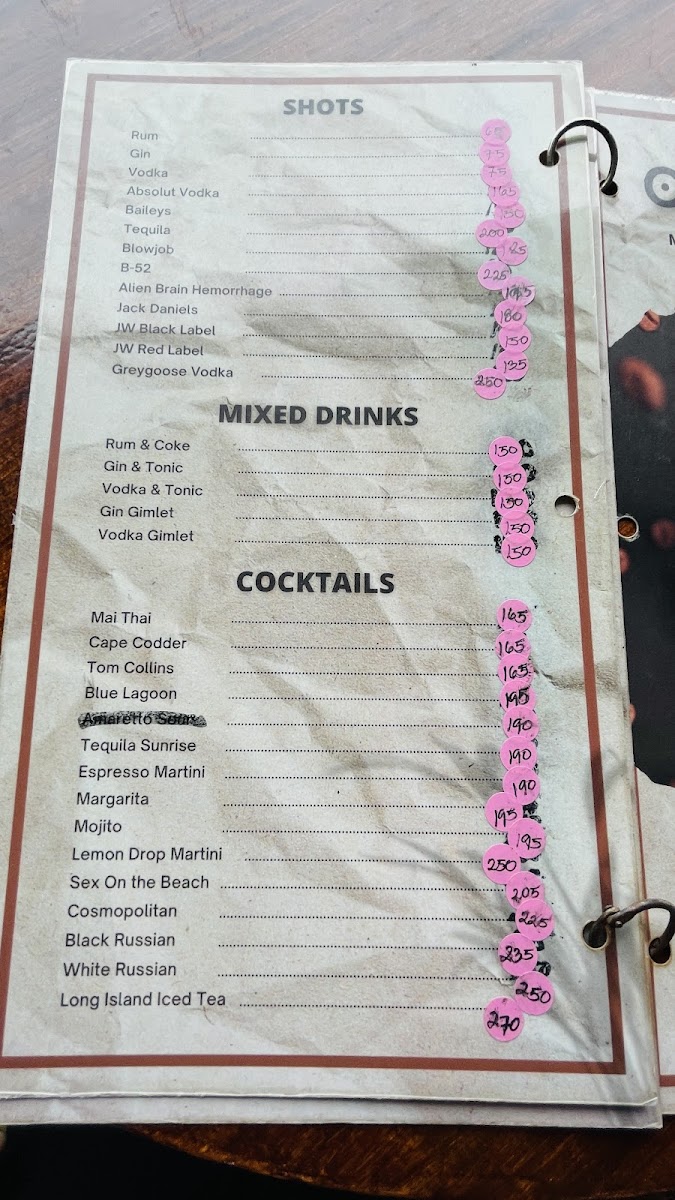 SHOTS
Rum
Gin 75
Vodka 75
Absolut Vodka 165
Baileys 150
Tequila 200
Blowjob 185
B-52 225
Alien Brain Hemorrhage
Jack Daniels 180
JW Black Label 150
JW Red Label 135
Greygoose Vodka 250
MIXED DRINKS
Rum & Coke 150
Gin & Tonic 150
Vodka & Tonic 150
Gin Gimlet 150
Vodka Gimlet 150
COCKTAILS
Mai Thai 165
Cape Codder 165
Tom Collins 165
Blue Lagoon 195
Amaretto Sour 190
Tequila Sunrise 190
Espresso Martini 190
Margarita 195
Mojito 195
Lemon Drop Martini 250
Sex On the Beach 205
Cosmopolitan 225
Black Russian 235
White Russian 250
Long Island Iced Tea 270